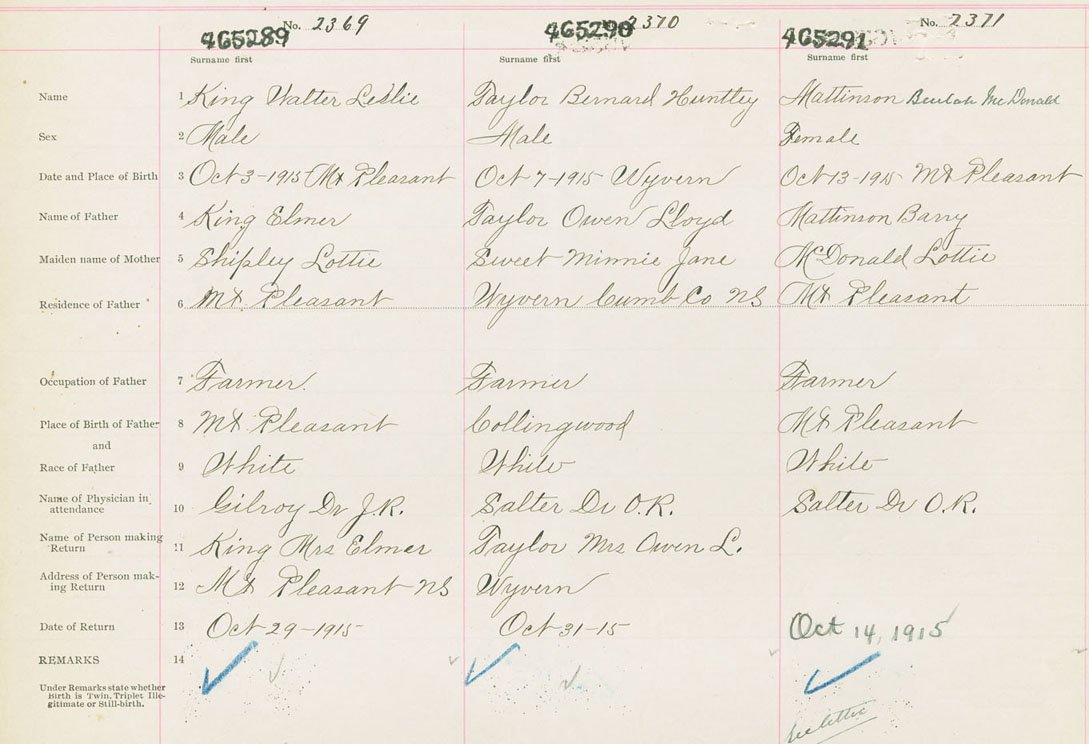 No. 2369 2370 No. 2371
465289 465290 465291
Surname first Surname first Surname first
Name 1 King Walter Leslie Taylor Bernard Huntley Mattinson Beulah McDonald
Sex 2 Male Male Female
Date and Place of Birth 3 Oct 3-1915 Mt Pleasant Oct 7-1915 Wyvern Oct 13-1915 Mt Pleasant
Name of Father 4 King Elmer Taylor Owen Lloyd Mattinson Barry
Maiden name of Mother 5 Shipley Lottie Sweet Minnie Jane McDonald Lottie
Residence of Father 6 Mt Pleasant Wyvern Cumb Co NS Mt Pleasant
Occupation of Father 7 Farmer. Farmer Farmer
Place of Birth of Father 8 Mt Pleasant Collingwood Mt Pleasant
and
Race of Father 9 White White White
Name of Physician in
attendance 10 Gilroy Dr J.R. Salter Dr O.R. Salter Dr O.R.
Name of Person making
Return 11 King Mrs Elmer Taylor Mrs Owen L.
Address of Person mak-
ing Return 12 Mt Pleasant NS Wyvern
Date of Return 13 Oct 29-1915 Oct 31-15 Oct 14, 1915
REMARKS 14
Under Remarks state whether
Birth is Twin, Triplet Ille-
gitimate or Still-birth.
see letter